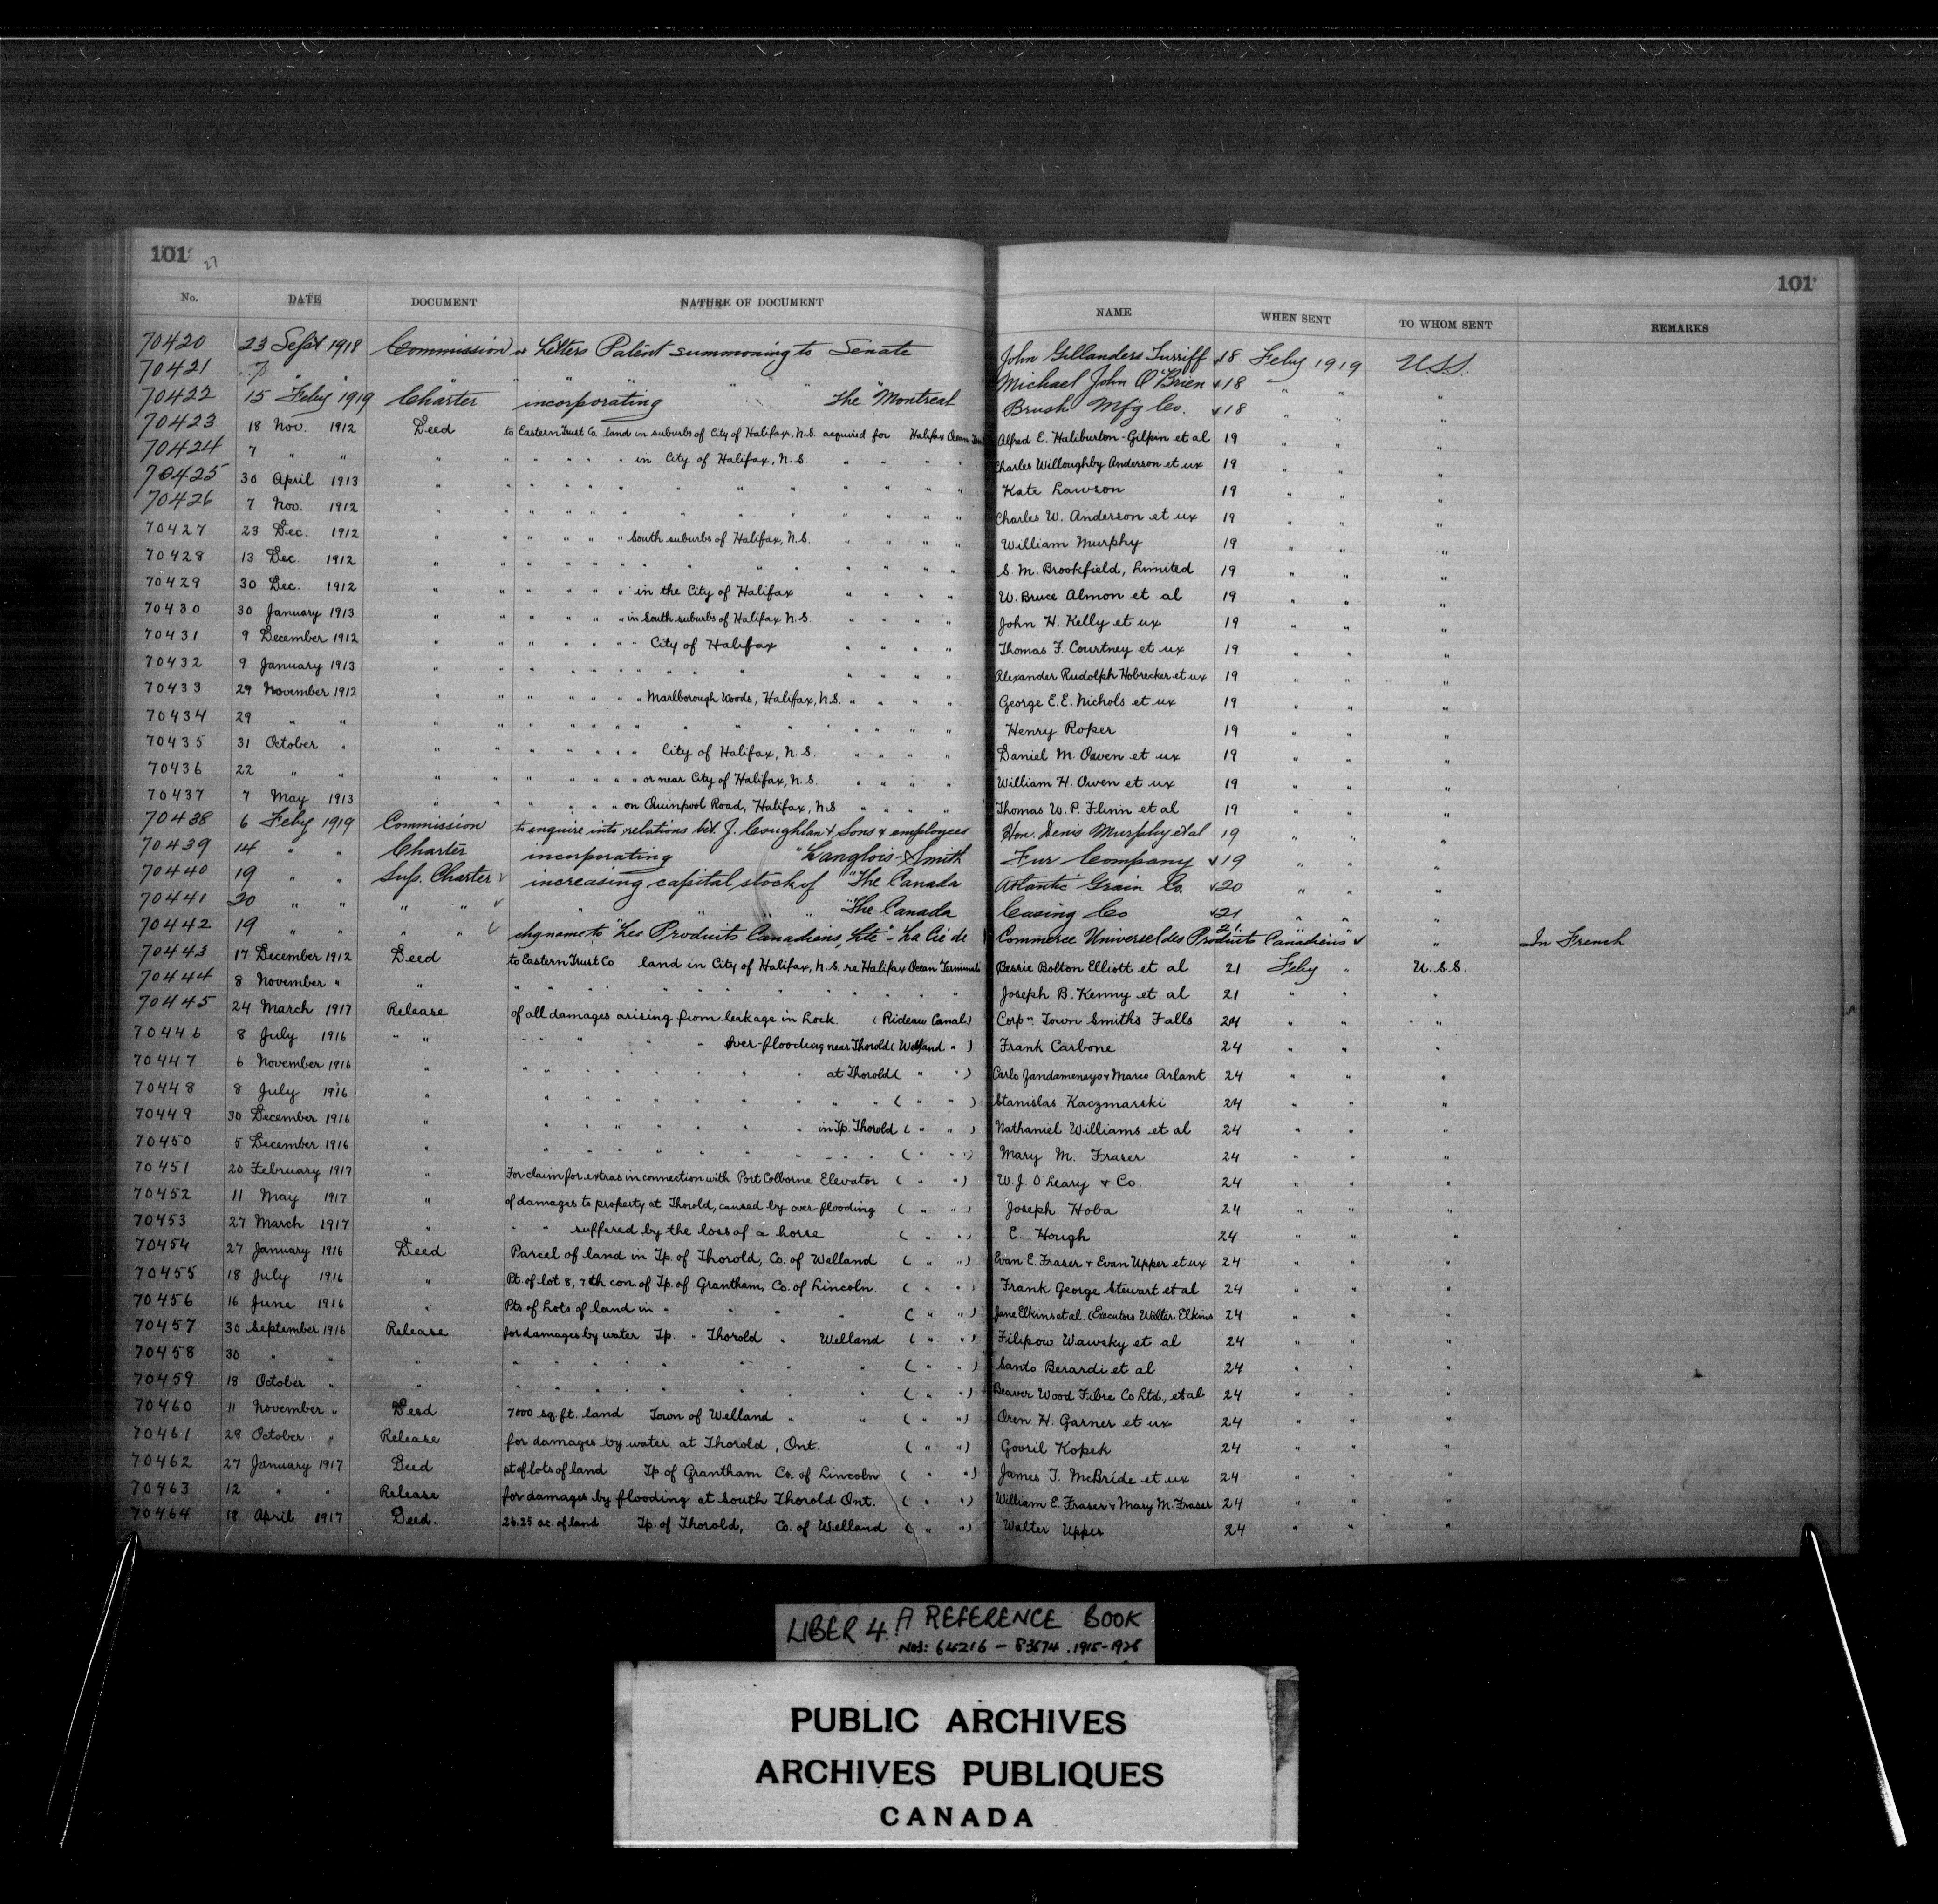 101 27 101
No. DATE DOCUMENT NATURE OF DOCUMENT NAME WHEN SENT TO WHOM SENT REMARKS
70420 23 Sept 1918 Commission or Letters Patent summoning to Senate John Gillanders Turriff √18 Feby 1919 U.S.S.
70421 " " " " " " " Michael John O'Brien √18 " " "
70422 15 Feby 1919 Charter incorporating "The Montreal Brush Mfg Co. √18 " " "
70423 18 Nov. 1912 Deed to Eastern Trust Co. land in suburbs of City of Halifax, N.S. acquired for Halifax Ocean Alfred E. Haliburton-Gilpin et al 19 " " "
70424 7 " " " " " " " " in City of Halifax, N.S. " " " " Charles Willoughby Anderson et ux 19 " " "
70425 30 April 1913 " " " " " " " " " " " " Kate Lawson 19 " " "
70426 7 Nov. 1912 " " " " " " " " " " " " Charles W. Anderson et ux 19 " " "
70427 23 Dec. 1912 " " " " " " South suburbs of Halifax, N.S. " " " " William Murphy 19 " " "
70428 13 Dec. 1912 " " " " " " " " " " " " S. M. Brookfield, Limited 19 " " "
70429 30 Dec. 1912 " " " " " " in the City of Halifax " " " " W. Bruce Almon et al 19 " " "
70430 30 January 1913 " " " " " " in South suburbs of Halifax N.S. " " " " John H. Kelly et ux 19 " " "
70431 9 December 1912 " " " " " " " City of Halifax " " " " Thomas F. Courtney et ux 19 " " "
70432 9 January 1913 " " " " " " " " " " " " " Alexander Rudolph Hobrecker et ux 19 " " "
70433 29 November 1912 " " " " " " " Marlborough Woods, Halifax, N.S. " " " " George E.E. Nichols et ux 19 " " "
70434 29 " " " " " " " " " " " " " " " " Henry Roper 19 " " "
70435 31 October " " " " " " " " City of Halifax, N.S. " " " " Daniel M. Owen et ux 19 " " "
70436 22 " " " " " " " " " or near City of Halifax, N.S. " " " " William H. Owen et ux 19 " " "
70437 7 May 1913 " " " " " " on Quinpool Road, Halifax, N.S " " " " Thomas W. P. Flinn et al 19 " " "
70438 6 Feby 1919 Commission to enquire into relations bet. J. Coughlan & Sons & employees Hon. Denis Murphy et al 19 " " "
70439 14 " " Charter incorporating "Langlois-Smith Fur Company √19 " " "
70440 19 " " Sup. Charter √ increasing capital stock of "The Canada Atlantic Grain Co. √20 " " "
70441 20 " " " " √ " " " " "The Canada Casing Co √21 " " "
70442 19 " " " " √ chg name to "Les Produits Canadiens, Lte" - La Cie de Commerce Universel des Produits Canadiens" 21 √ " In French
70443 17 December 1912 Deed to Eastern Trust Co land in City of Halifax, N.S. re Halifax Ocean Terminals Bessie Bolton Elliott et al 21 Feby " U.S.S.
70444 8 November " " " " " " " " " " " " " Joseph B. Kenny et al 21 " " "
70445 24 March 1917 Release of all damages arising from leakage in Lock. (Rideau Canal) Corpn. Town Smiths Falls 24 " " "
70446 8 July 1916 " " " " " " " over-flooding near Thorold (Welland " ) Frank Carbone 24 " " "
70447 6 November 1916 " " " " " " " " at Thorold ( " " ) Carlo & Marco Arlant 24 " " "
70448 8 July 1916 " " " " " " " " " " " ( " " ) Stanislas Kaczmarski 24 " " "
70449 30 December 1916 " " " " " " " " in Tp. Thorold ( " " ) Nathaniel Williams et al 24 " " "
70450 5 December 1916 " " " " " " " " " " " ( " " ) Mary M. Fraser 24 " " "
70451 20 February 1917 " For claim for extras in connection with Port Colborne Elevator ( " " ) W. J. O'Leary & Co. 24 " " "
70452 11 May 1917 " of damages to property at Thorold, caused by over flooding ( " " ) Joseph Hoba 24 " " "
70453 27 March 1917 " " " suffered by the loss of a horse ( " " ) E. Hough 24 " " "
70454 27 January 1916 Deed Parcel of land in Tp. of Thorold, Co. of Welland ( " " ) Evan E. Fraser & Evan Upper et ux 24 " " "
70455 18 July 1916 " Pt. of lot 8, 7th con. of Tp. of Grantham, Co. of Lincoln. ( " " ) Frank George Stewart et al 24 " " "
70456 16 June 1916 " Pts of Lots of land in " " " " ( " " ) Jane Elkins et al. (Executors Walter Elkins 24 " " "
70457 30 September 1916 Release for damages by water Tp. " Thorold " Welland ( " " ) Filipow Wawsky et al 24 " " "
70458 30 " " " " " " " " " " " ( " " ) Santo Berardi et al 24 " " "
70459 18 October " " " " " " " " " " ( " " ) Beaver Wood Fibre Co Ltd., et al 24 " " "
70460 11 November " Deed 7000 sq. ft. land Town of Welland " " ( " " ) Oren H. Garner et ux 24 " " "
70461 28 October " Release for damages by water at Thorold, Ont. ( " " ) Govril Kopek 24 " " "
70462 27 January 1917 Deed pt of lots of land Tp. of Grantham Co. of Lincoln ( " " ) James T. McBride et ux 24 " " "
70463 12 " " Release for damages by flooding at South Thorold Ont. ( " " ) William E. Fraser & Mary M. Fraser 24 " " "
70464 18 April 1917 Deed. 26.25 ac. of land Tp. of Thorold, Co. of Welland ( " " ) Walter Upper 24 " " "
LIBER 4. A REFERENCE BOOK
NOS: 64216 - 83674. 1915-1928
PUBLIC ARCHIVES
ARCHIVES PUBLIQUES
CANADA